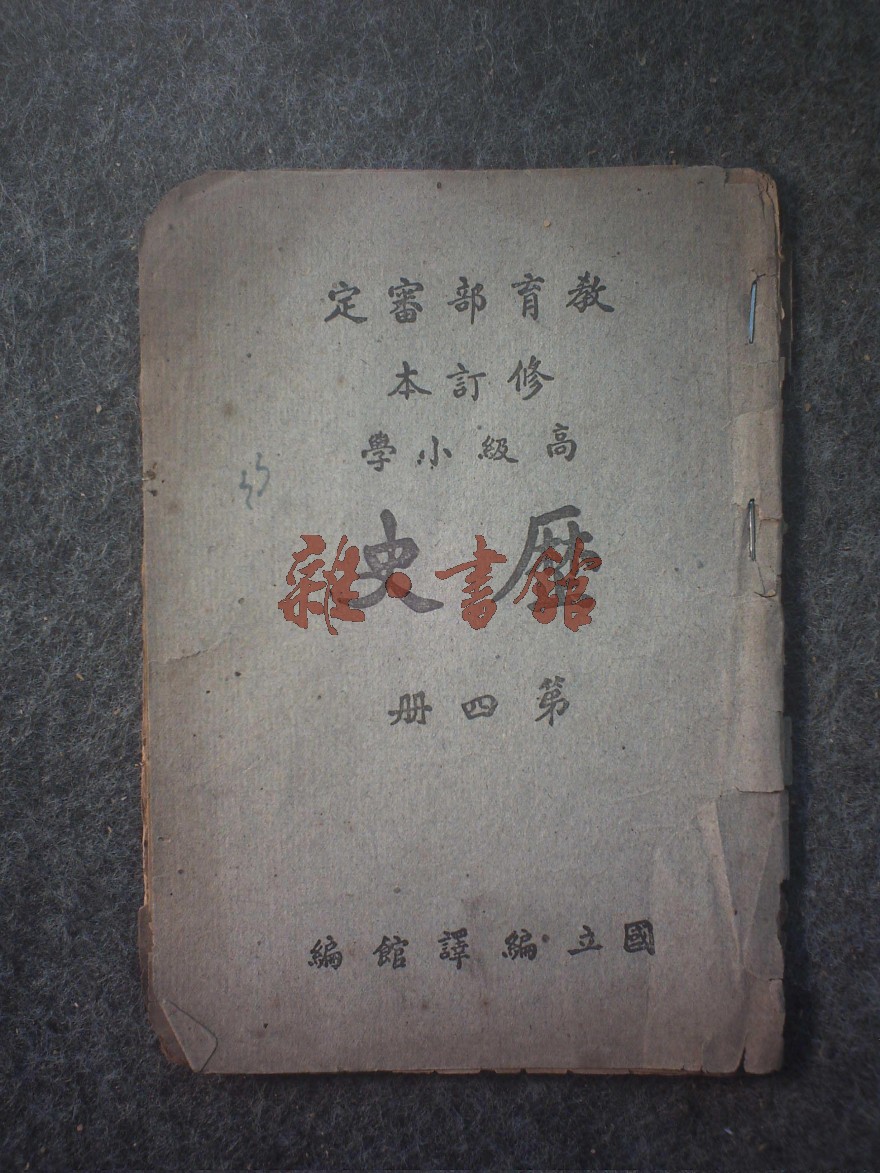 教育部審定
修訂本
高級小學
歷史
雜·書館
第四册
國立編譯館編